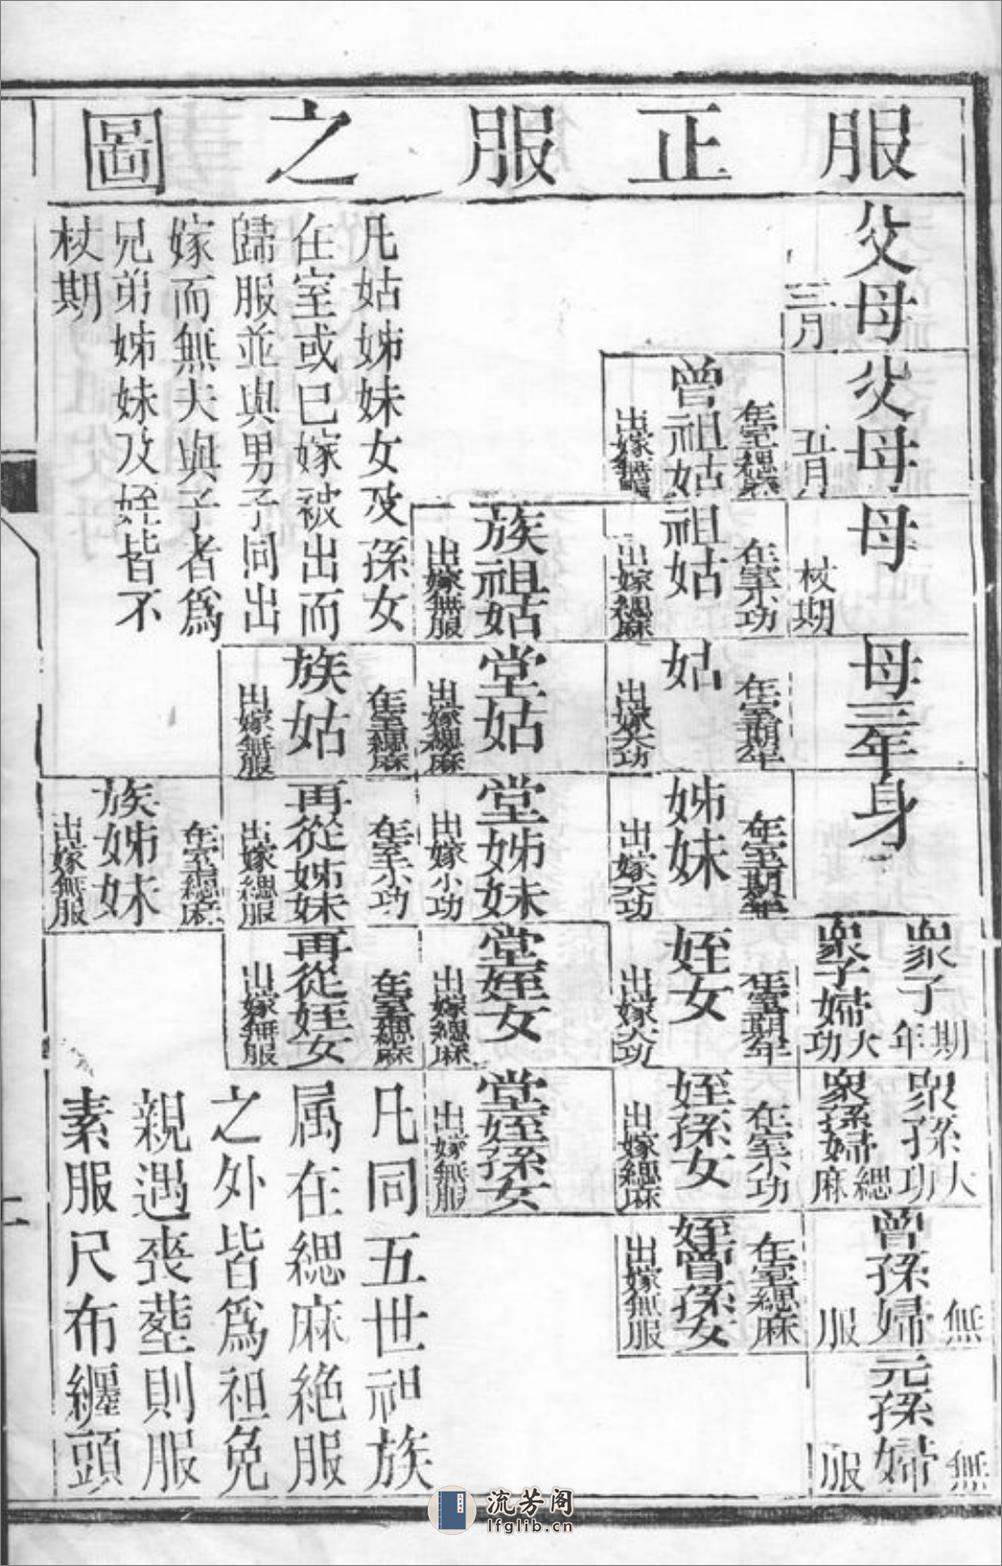 服正服之圖
父母
三月
父母
五月
母
杖期
母三年
身
衆子
期年
衆子婦
大功
衆孫
大功
衆孫婦
緦麻
曾孫婦
無服
元孫婦
無服
曾祖姑
在室緦麻
出嫁無服
祖姑
在室小功
出嫁緦麻
姑
在室期年
出嫁大功
姊妹
在室期年
出嫁大功
姪女
在室期年
出嫁大功
姪孫女
在室小功
出嫁緦麻
姪曾孫女
在室緦麻
出嫁無服
族祖姑
出嫁無服
堂姑
出嫁緦麻
堂姊妹
出嫁小功
堂姪女
出嫁緦麻
堂姪孫女
出嫁無服
族姑
在室緦麻
出嫁無服
再從姊妹
在室小功
出嫁緦服
再從姪女
在室緦麻
出嫁無服
族姊妹
在室緦麻
出嫁無服
凡姑姊妹女及孫女
在室或已嫁被出而
歸服並與男子同出
嫁而無夫與子者爲
兄弟姊妹及姪皆不
杖期
凡同五世祖族
属在緦麻絶服
之外皆爲袒免
親遇喪塟則服
素服尺布纏頭
二
流芳阁
lfglib.cn